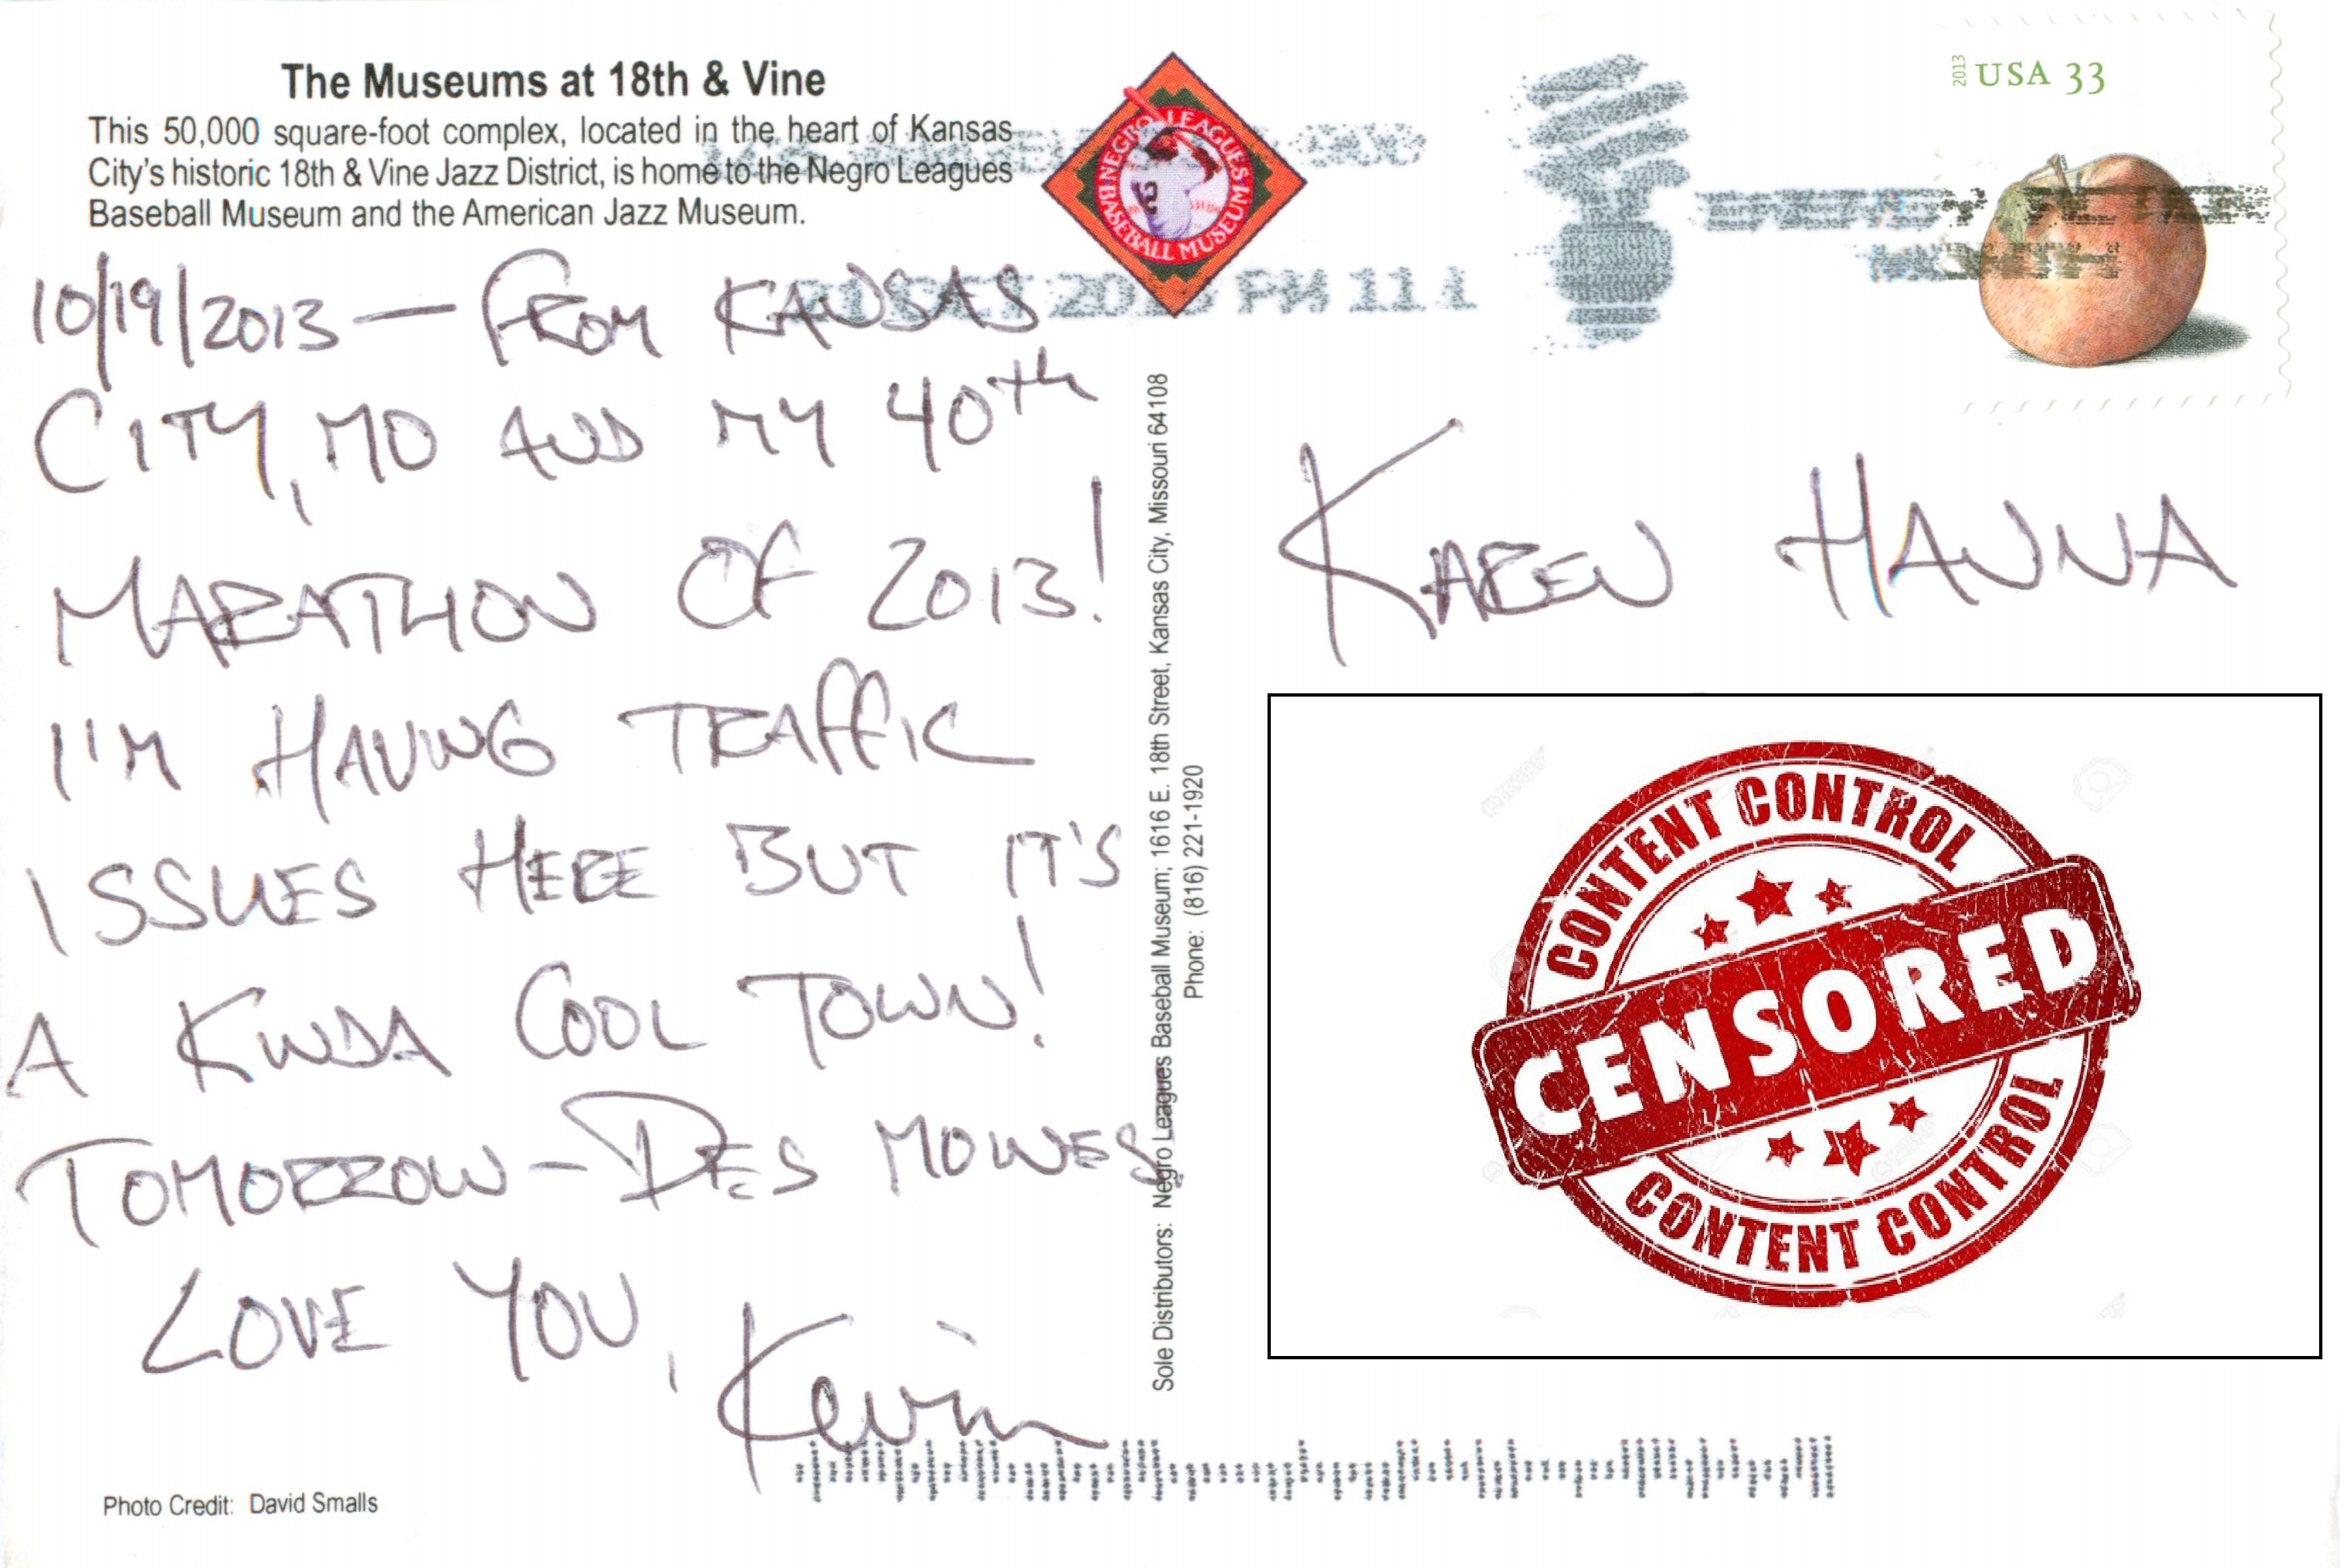 The Museums at 18th & Vine
This 50,000 square-foot complex, located in the heart of Kansas
City's historic 18th & Vine Jazz District, is home to the Negro Leagues
Baseball Museum and the American Jazz Museum.
NEGRO LEAGUES
BASEBALL MUSEUM
2013 USA 33
PM 11 L
10/19/2013 — FROM KANSAS
CITY, MO AND MY 40th
MARATHON OF 2013!
I'M HAVING TRAFFIC
ISSUES HERE BUT IT'S
A KINDA COOL TOWN!
TOMORROW - DES MOINES
LOVE YOU,
Kevin
Sole Distributors: Negro Leagues Baseball Museum; 1616 E. 18th Street, Kansas City, Missouri 64108
Phone: (816) 221-1920
KAREN HANNA
CONTENT CONTROL
CENSORED
CONTENT CONTROL
Photo Credit: David Smalls